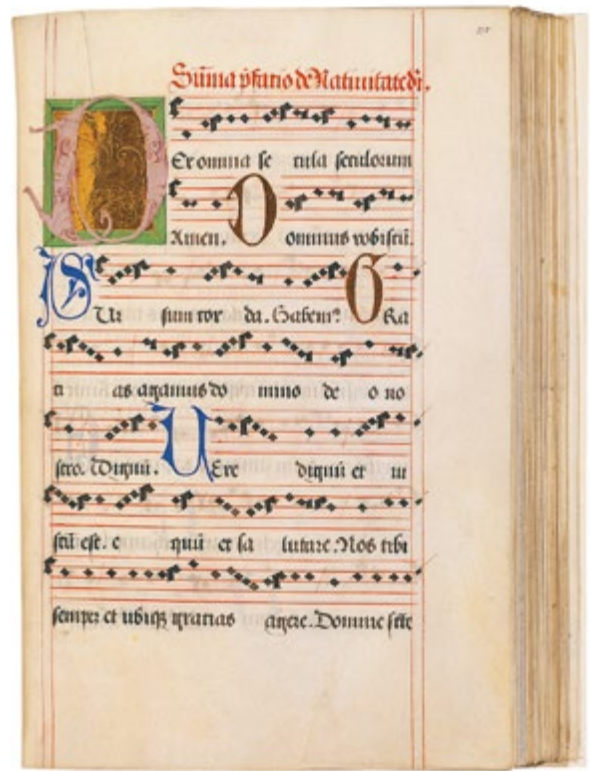 Su̅ma p̅fatio de Natiuitate dn̅i.
PEr omnia se cula seculorum
Amen. Dominus vobiscu̅.
SUr sum cor da. Habem⁹. GRa
ti as agamus do mino de o no
stro. Dignu̅. UEre dignu̅ et iu
stu̅ est. e quu̅ et sa lutare. Nos tibi
semper et ubiqꝫ gratias agere. Domine sct̅e